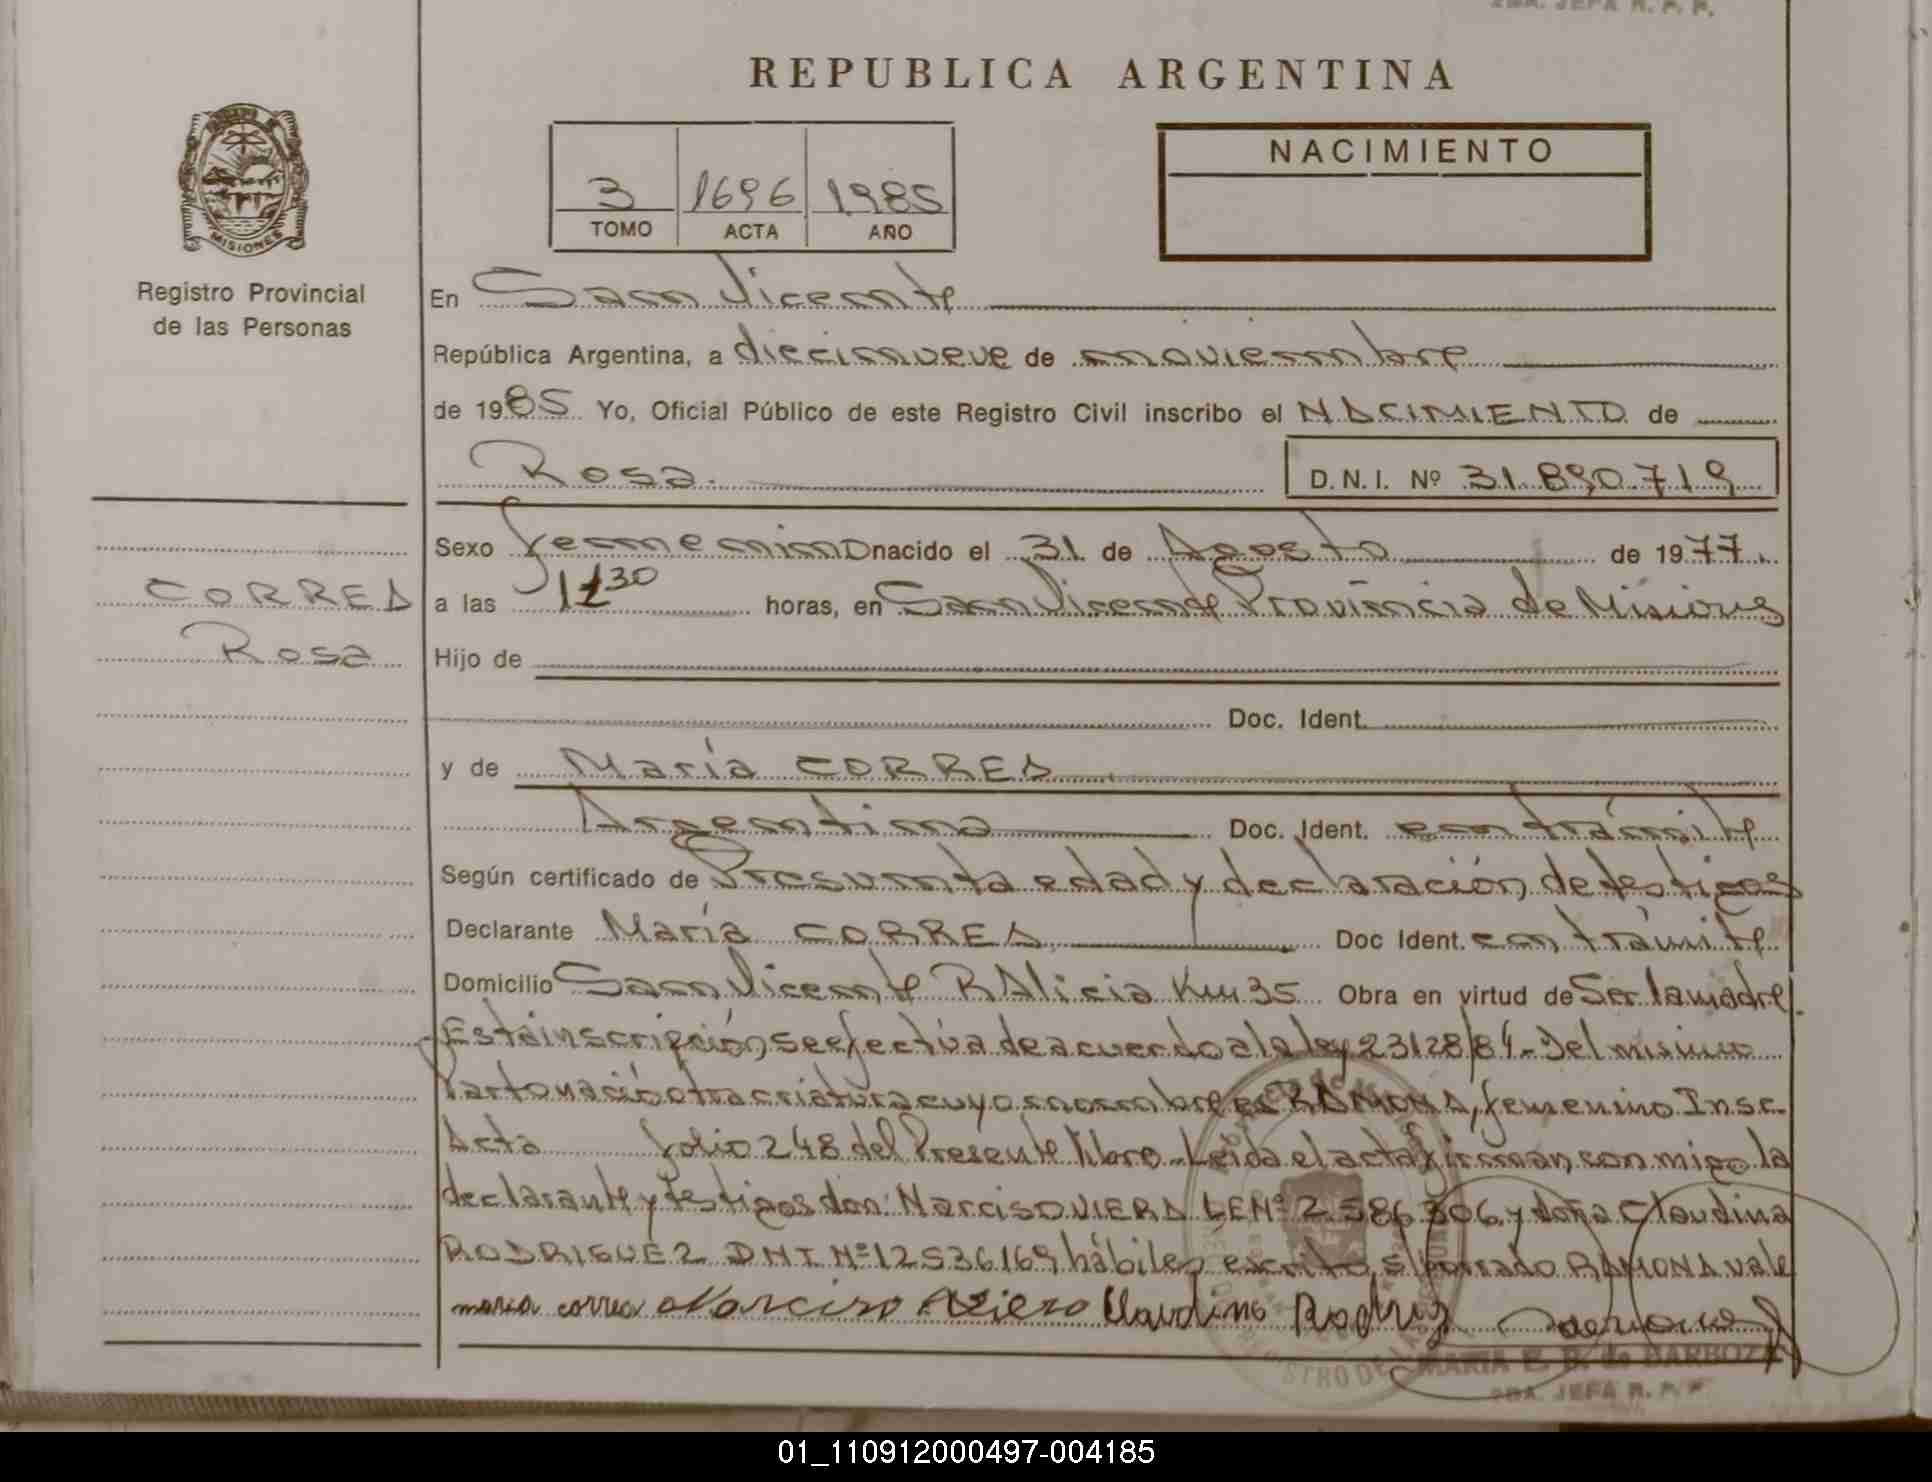 2DA. JEFA R. P. P.
REPUBLICA ARGENTINA
NACIMIENTO
3 1696 1985
TOMO ACTA AÑO
MISIONES
Registro Provincial
de las Personas
En San Vicente
República Argentina, a diecinueve de noviembre
de 1985 Yo, Oficial Público de este Registro Civil inscribo el NACIMIENTO de
Rosa.
D.N.I. Nº 31.890.719
Sexo femenino nacido el 31 de Agosto de 1977.
CORREA
Rosa
a las 30 horas, en San Vicente Provincia de Misiones
Hijo de
Doc. Ident.
y de María CORREA
Argentina Doc. Ident. en trámite
Según certificado de Presunta edad y declaración de testigos
Declarante María CORREA Doc Ident. en trámite
Domicilio San Vicente P. Alicia Km 35 Obra en virtud de Ser la madre.
Esta inscripción se efectúa de acuerdo a la ley 23128/84.- Del mismo
Parto nació otra criatura cuyo nombre es RAMONA, femenino Insc.
Acta folio 248 del Presente libro.- Leída el acta firman conmigo la
declarante y testigos don: Narciso VIERA LE Nº 2586306 y doña Claudina
RODRIGUEZ DNI Nº 12536169 hábiles escrito s/borrado RAMONA vale
maria correa Narciso Viera Claudina Rodriz
MARIA E. B. de BARBOZA
2DA. JEFA R. P. P.
01_110912000497-004185